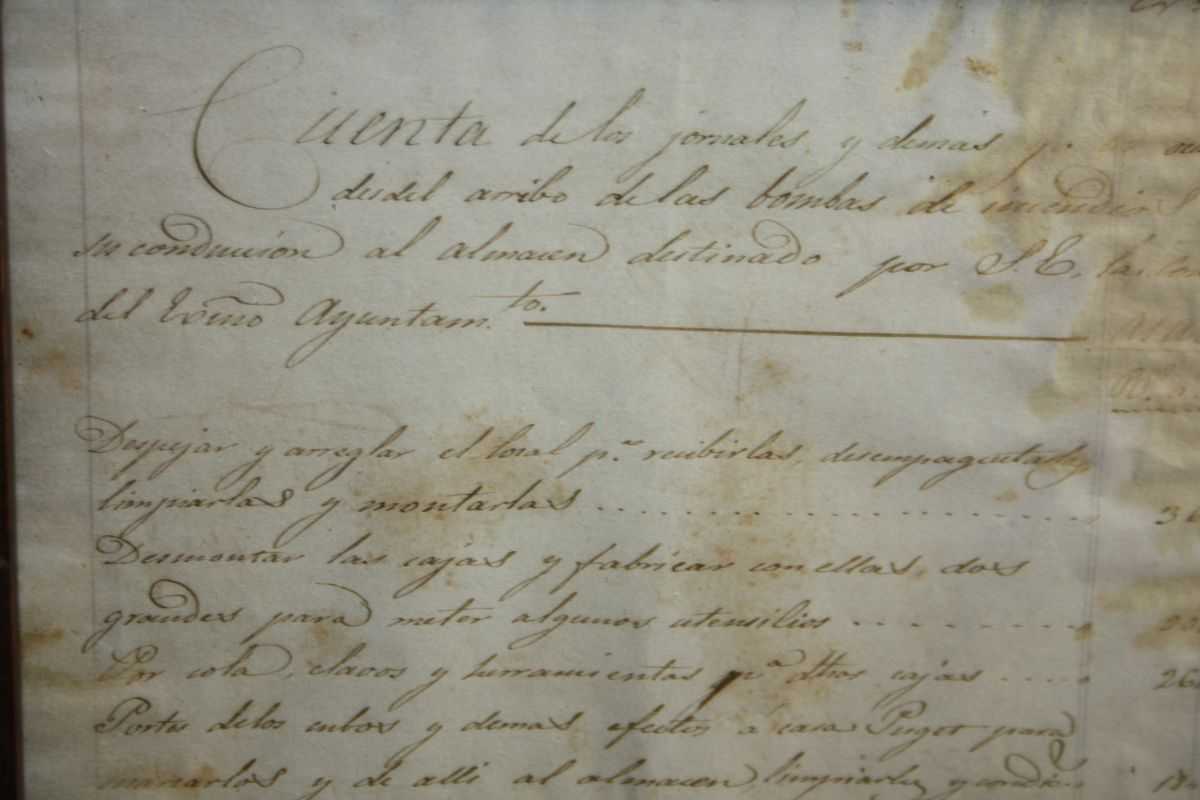 Cuenta de los jornales, y demas
desdel arribo de las bombas de incendio
su conducción al almacen destinado por S.E. las
del Exmo Ayuntam.to
Despejar y arreglar el local p.a recibirlas, desempaquetarlas
limpiarlas y montarlas
Desmontar las cajas y fabricar con ellas, dos
grandes para meter algunos utensilios
Por cola, clavos y herramientas p.a dhas cajas 26
Portes de los cubos y demas efectos á casa Puget para
marcarlos y de alli al almacen, limpiarlos y